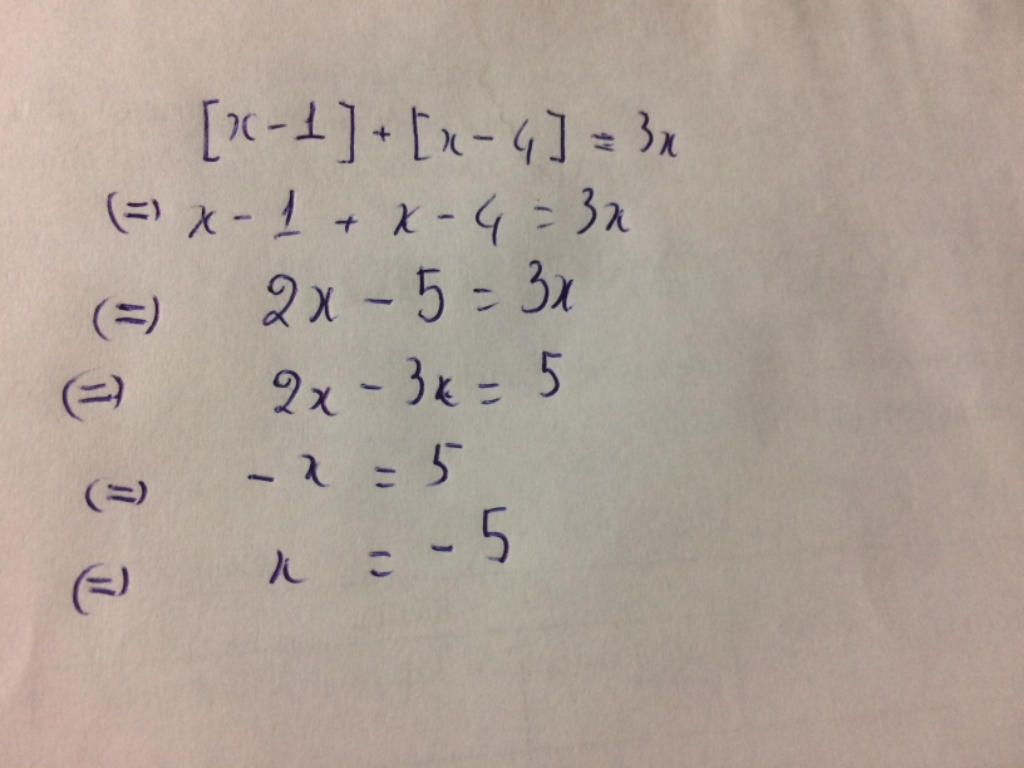 [x-1] + [x-4] = 3x
(=) x - 1 + x - 4 = 3x
(=) 2x - 5 = 3x
(=) 2x - 3x = 5
(=) - x = 5
(=) x = - 5